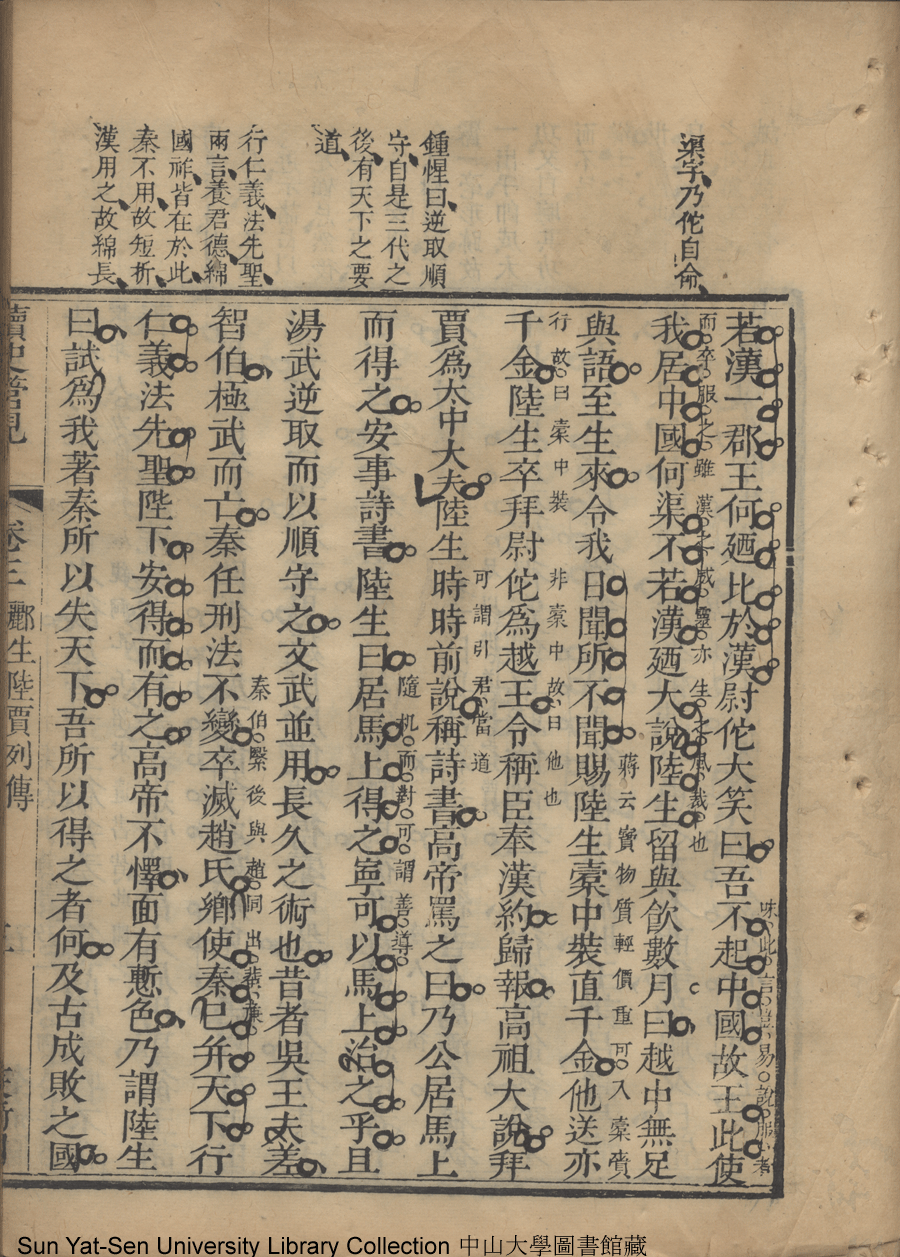 渠字乃佗自命
鍾惺曰逆取順
守自是三代之
後有天下之要
道
行仁義法先聖
兩言養君德綿
國祚皆在於此
秦不用故短折
漢用之故綿長
若漢一郡王何廼比於漢尉佗大笑曰吾不起中國故王此使
味此言豈易說服者
而卒服之雖漢之威靈亦生之風裁也
我居中國何渠不若漢廼大說陸生留與飲數月曰越中無足
與語至生來令我日聞所不聞賜陸生橐中裝直千金他送亦
蔣云寶物質輕價重可入橐賫
行故曰橐中裝
非橐中故曰他也
千金陸生卒拜尉佗為越王令稱臣奉漢約歸報高祖大說拜
賈為太中大夫陸生時時前說稱詩書高帝罵之曰乃公居馬上
可謂引君當道
而得之安事詩書陸生曰居馬上得之寧可以馬上治之乎且
隨机而對可謂善導
湯武逆取而以順守之文武並用長久之術也昔者吳王夫差
智伯極武而亡秦任刑法不變卒滅趙氏鄉使秦已并天下行
秦伯緊後與趙同出
仁義法先聖陛下安得而有之高帝不懌面有慙色乃謂陸生
曰試為我著秦所以失天下吾所以得之者何及古成敗之國
讀史管見
卷三
酈生陸賈列傳
Sun Yat-Sen University Library Collection 中山大學圖書館藏